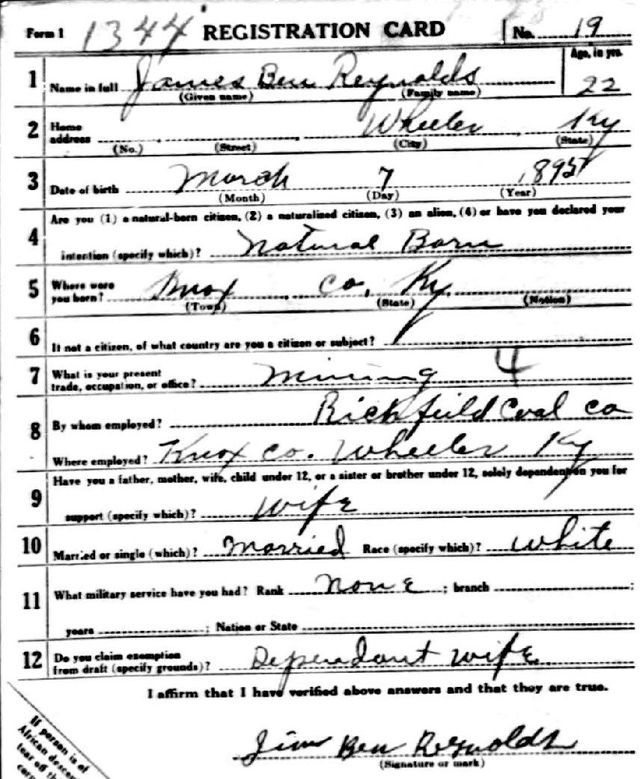 Form 1 1344 REGISTRATION CARD No. 19
1 Name in full James Ben Reynolds Age, in yrs. 22
(Given name) (Family name)
2 Home address Wheeler Ky
(No.) (Street) (City) (State)
3 Date of birth March 7 1895
(Month) (Day) (Year)
4 Are you (1) a natural-born citizen, (2) a naturalized citizen, (3) an alien, (4) or have you declared your
intention (specify which)? Natural Born
5 Where were you born? Knox Co, Ky
(Town) (State) (Nation)
6 If not a citizen, of what country are you a citizen or subject?
7 What is your present trade, occupation, or office? Mining 4
8 By whom employed? Richfield Coal Co
Where employed? Knox Co. Wheeler Ky
9 Have you a father, mother, wife, child under 12, or a sister or brother under 12, solely dependent on you for
support (specify which)? Wife
10 Married or single (which)? Married Race (specify which)? White
11 What military service have you had? Rank None ; branch ;
years ; Nation or State
12 Do you claim exemption from draft (specify grounds)? Dependant wife
I affirm that I have verified above answers and that they are true.
Jim Ben Reynolds
(Signature or mark)
If person is of
African
tear off